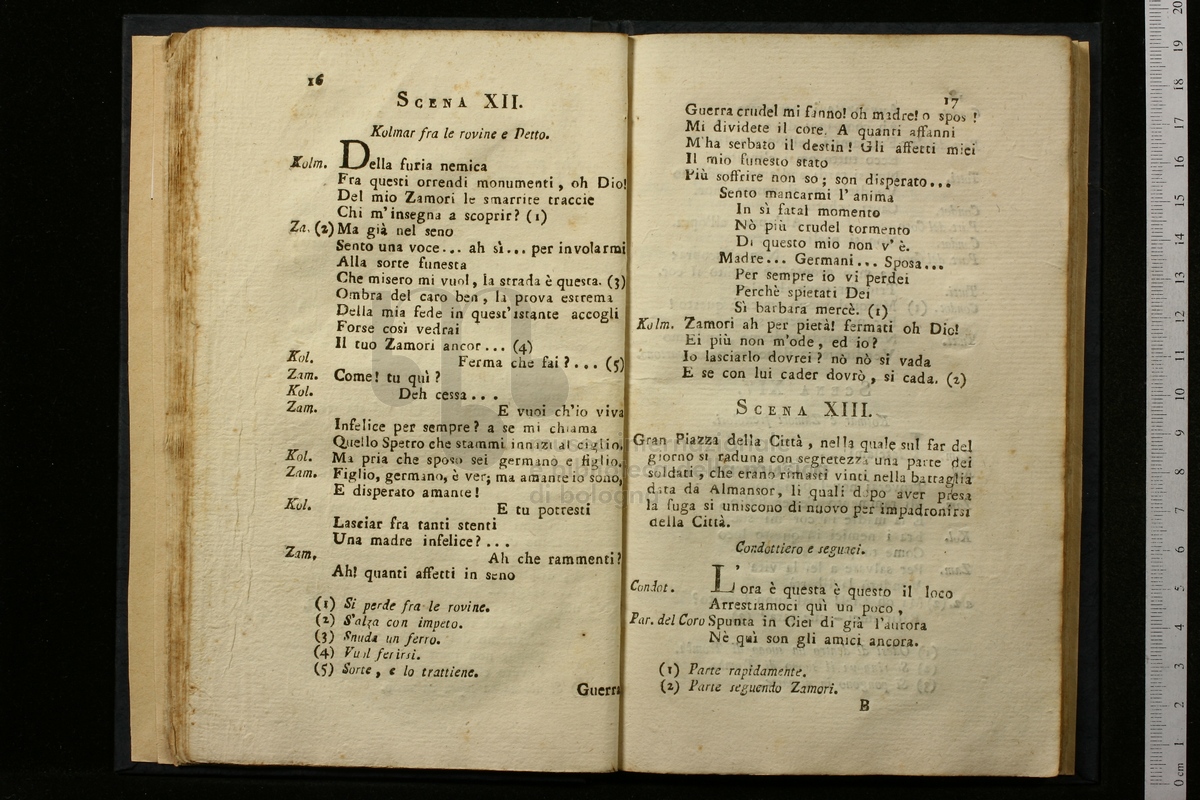 16
SCENA XII.
Kolmar fra le rovine e Detto.
Kolm. Della furia nemica
Fra questi orrendi monumenti, oh Dio!
Del mio Zamori le smarrite traccie
Chi m'insegna a scoprir? (1)
Za. (2) Ma già nel seno
Sento una voce... ah sì... per involarmi
Alla sorte funesta
Che misero mi vuol, la strada è questa. (3)
Ombra del caro ben, la prova estrema
Della mia fede in quest'istante accogli
Forse così vedrai
Il tuo Zamori ancor... (4)
Kol. Ferma che fai?... (5)
Zam. Come! tu quì?
Kol. Deh cessa...
Zam. E vuoi ch'io viva
Infelice per sempre? a se mi chiama
Quello Spetro che stammi innazi al ciglio.
Kol. Ma pria che sposo sei germano e figlio.
Zam. Figlio, germano, è ver; ma amante io sono,
E disperato amante!
Kol. E tu potresti
Lasciar fra tanti stenti
Una madre infelice?...
Zam. Ah che rammenti?
Ah! quanti affetti in seno
(1) Si perde fra le rovine.
(2) S'alza con impeto.
(3) Snuda un ferro.
(4) Vuol ferirsi.
(5) Sorte, e lo trattiene.
Guerra
17
Guerra crudel mi fanno! oh madre! o spos !
Mi dividete il core. A quanti affanni
M'ha serbato il destin! Gli affetti miei
Il mio funesto stato
Più soffrire non so; son disperato...
Sento mancarmi l'anima
In sì fatal momento
Nò più crudel tormento
Di questo mio non v'è.
Madre... Germani... Sposa...
Per sempre io vi perdei
Perchè spietati Dei
Sì barbara mercè. (1)
Kolm. Zamori ah per pietà! fermati oh Dio!
Ei più non m'ode, ed io?
Io lasciarlo dovrei? nò nò si vada
E se con lui cader dovrò, si cada. (2)
SCENA XIII.
Gran Piazza della Città, nella quale sul far del
giorno si raduna con segretezza una parte dei
soldati, che erano rimasti vinti nella battaglia
data da Almansor, li quali dopo aver presa
la fuga si uniscono di nuovo per impadronirsi
della Città.
Condottiero e seguaci.
Condot. L'ora è questa è questo il loco
Arrestiamoci quì un poco,
Par. del Coro Spunta in Ciel di già l'aurora
Nè quì son gli amici ancora.
(1) Parte rapidamente.
(2) Parte seguendo Zamori.
B